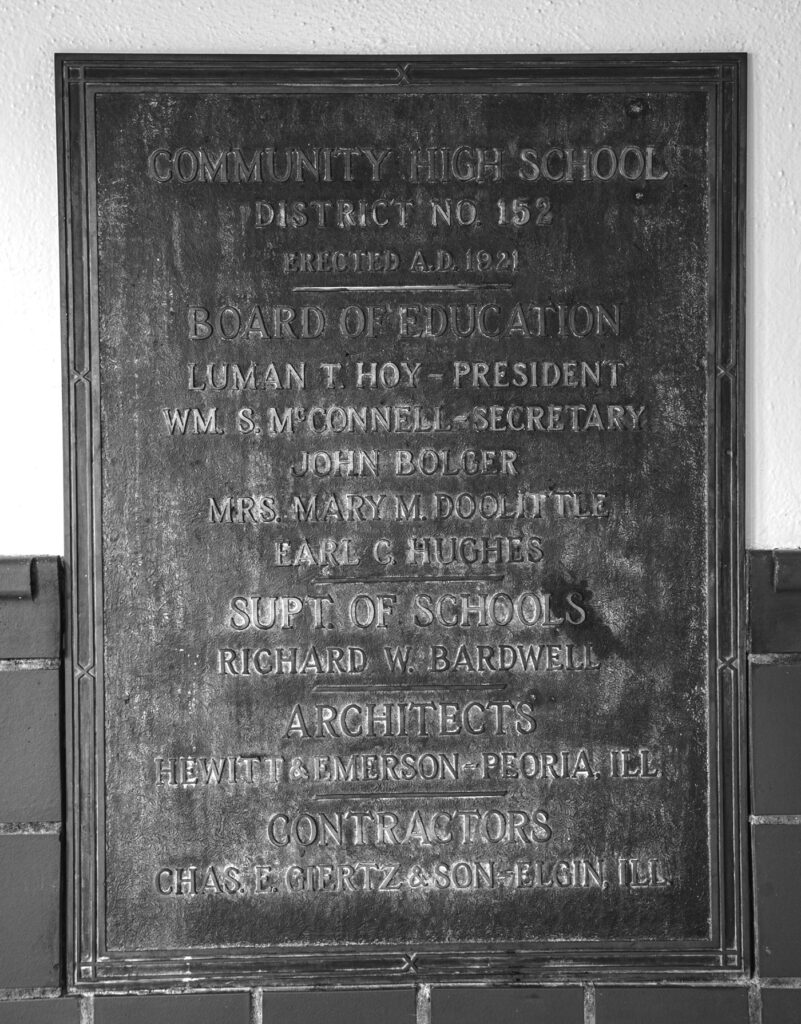 COMMUNITY HIGH SCHOOL
DISTRICT NO. 152
ERECTED A.D. 1921
BOARD OF EDUCATION
LUMAN T. HOY - PRESIDENT
WM. S. McCONNELL - SECRETARY
JOHN BOLGER
MRS. MARY M. DOOLITTLE
EARL C. HUGHES
SUPT. OF SCHOOLS
RICHARD W. BARDWELL
ARCHITECTS
HEWITT & EMERSON - PEORIA, ILL.
CONTRACTORS
CHAS. E. GIERTZ & SON - ELGIN, ILL.